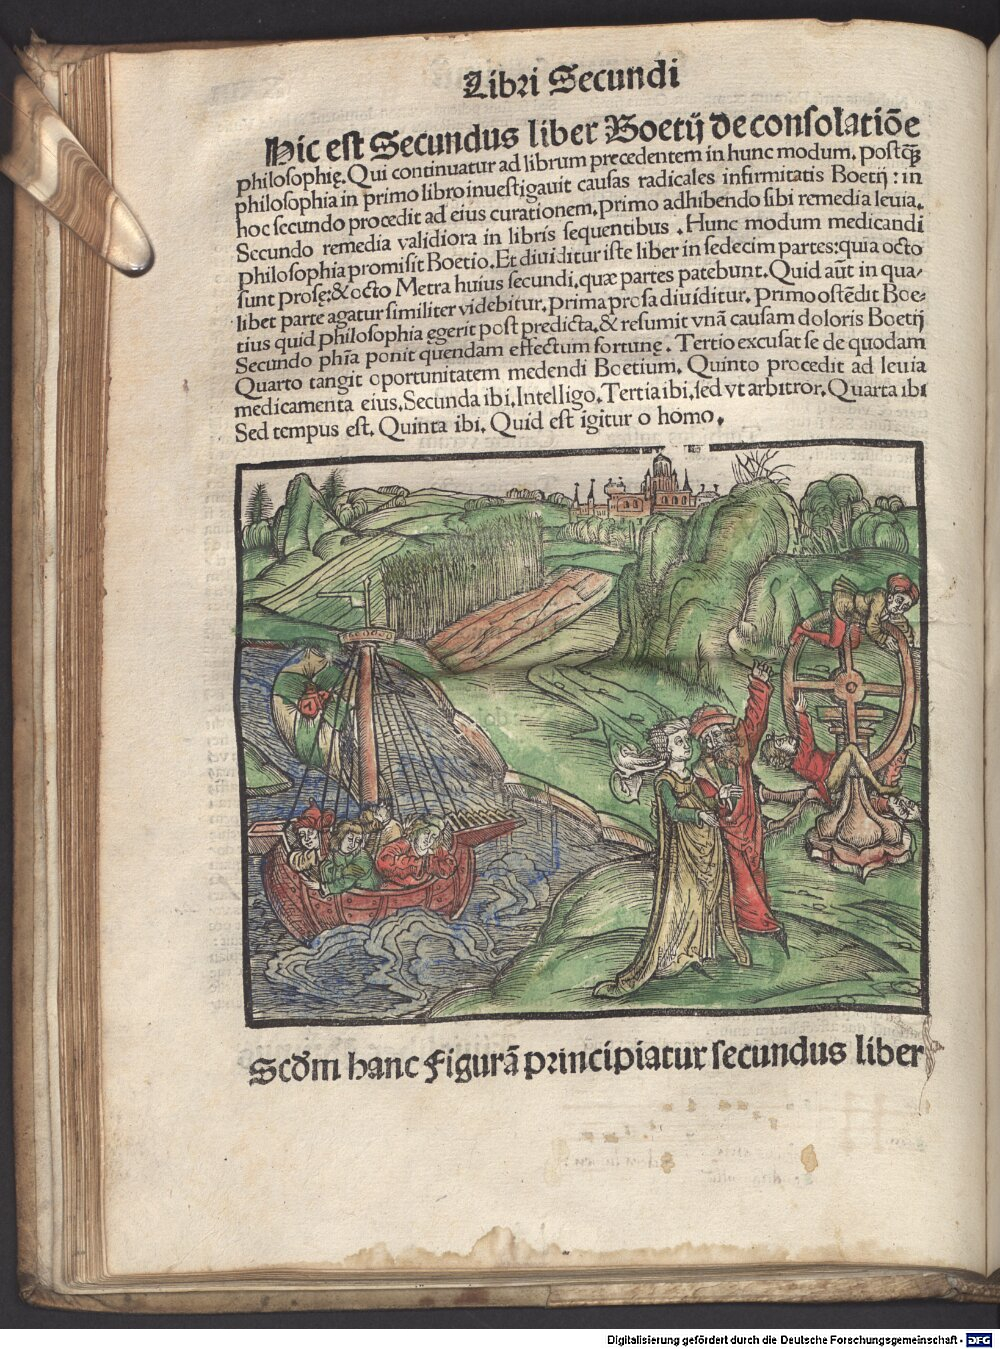 Libri Secundi
Hic est Secundus liber Boetij de consolatiōe
philosophię. Qui continuatur ad librum precedentem in hunc modum. Postꝙ̃
philosophia in primo libro inuestigauit causas radicales infirmitatis Boetij: in
hoc secundo procedit ad eius curationem. Primo adhibendo sibi remedia leuia.
Secundo remedia validiora in libris sequentibus. Hunc modum medicandi
Philosophia promisit Boetio. Et diuiditur iste liber in sedecim partes: quia octo
sunt prosę: & octo Metra huius secundi, quæ partes patebunt. Quid aūt in qua/
libet parte agatur similiter videbitur. Prima prosa diuiditur. Primo ostēdit Boe-
tius quid philosophia egerit post predicta, & resumit vnā causam doloris Boetij
Secundo phīa ponit quendam effectum fortunę. Tertio excusat se de quodam
Quarto tangit oportunitatem medendi Boetium. Quinto procedit ad leuia
medicamenta eius. Secunda ibi. Intelligo. Tertia ibi, sed vt arbitror. Quarta ibi
Sed tempus est. Quinta ibi. Quid est igitur o homo.
Scd̄m hanc figurā principiatur secundus liber
Digitalisierung gefördert durch die Deutsche Forschungsgemeinschaft - DFG